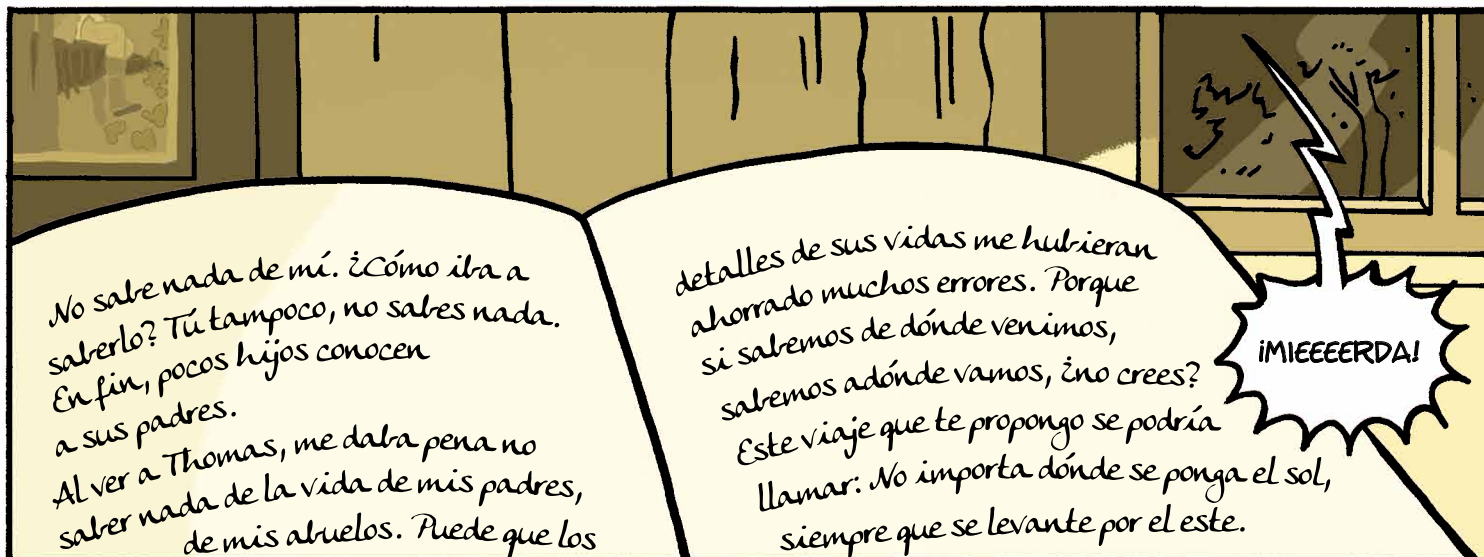 No sabe nada de mí. ¿Cómo iba a
saberlo? Tú tampoco, no sabes nada.
En fin, pocos hijos conocen
a sus padres.
Al ver a Thomas, me daba pena no
saber nada de la vida de mis padres,
de mis abuelos. Puede que los
detalles de sus vidas me hubieran
ahorrado muchos errores. Porque
si sabemos de dónde venimos,
sabemos adónde vamos, ¿no crees?
Este viaje que te propongo se podría
llamar: No importa dónde se ponga el sol,
siempre que se levante por el este.
¡MIEEEERDA!